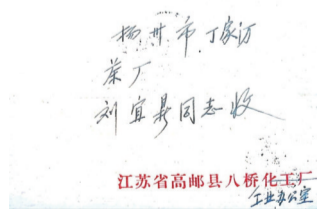 扬州市丁家汀
茶厂
刘宜彝同志收
江苏省高邮县八桥化工厂
工业办公室